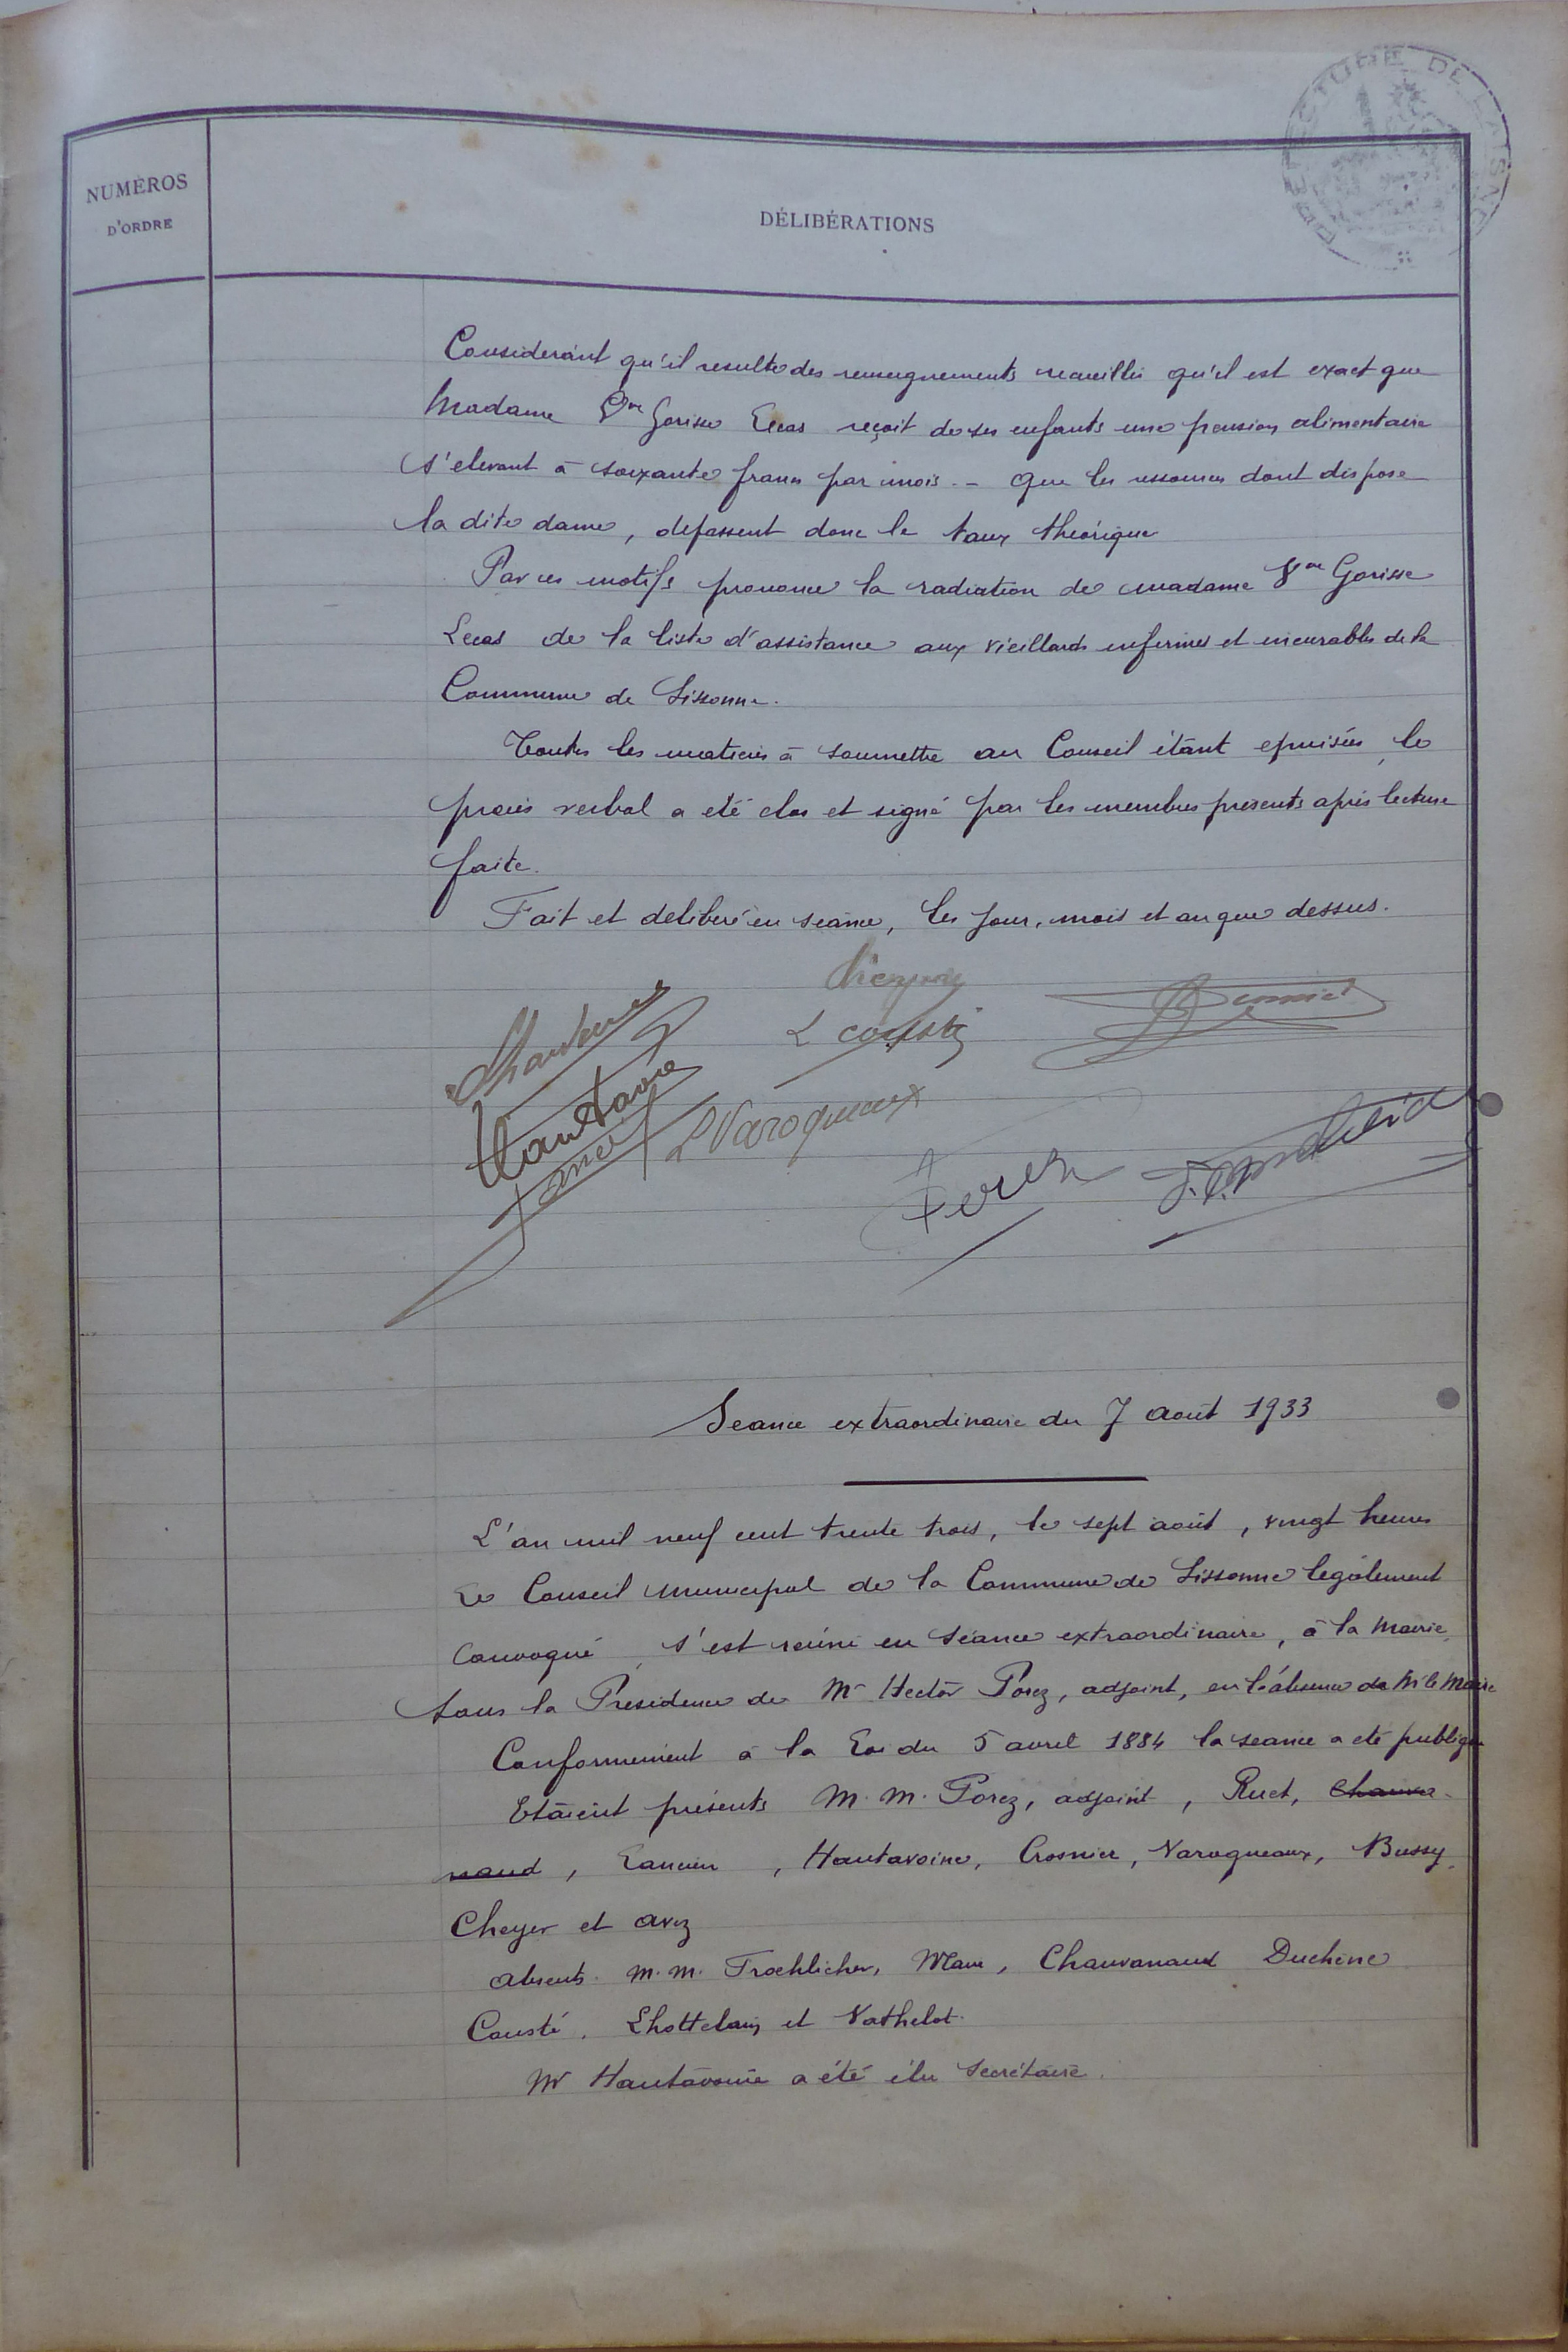 PRÉFECTURE DE L'AISNE
NUMÉROS
D'ORDRE
DÉLIBÉRATIONS
Considerant qu'il resulte des renseignements recueillis qu'il est exact que
Madame Vve Gorisse Lucas reçoit de ses enfants une pension alimentaire
s'elevant à soixante francs par mois. - que les ressources dont dispose
la dite dame, depassent donc le taux théorique
Par ces motifs prononce la radiation de madame Vve Gorisse
Lucas de la liste d'assistance aux vieillards infirmes et incurables de la
Commune de Sissonne.
Toutes les matieres à soumettre au Conseil étant epuisées, le
procès verbal a été clos et signé par les membres présents après lecture
faite.
Fait et deliberé en séance, les jour, mois et an que dessus.
L Cousté
Hautavoine
L Varoqueaux
Porez
Seance extraordinaire du 7 août 1933
L'an mil neuf cent trente trois, le sept août, vingt heures
Le Conseil municipal de la Commune de Sissonne légalement
convoqué, s'est reuni en séance extraordinaire, à la Mairie,
sous la Présidence de Mr Hector Porez, adjoint, en l'absence de Mr le Maire
Conformement à la Loi du 5 avril 1884 la seance a été publique
Etaient présents M.M. Porez, adjoint, Ruet, Chauva-
naud, Lancien, Hautavoine, Crosnier, Varoqueaux, Bussy,
Cheyer et Avez
Absents. M.M. Froehlicher, Maire, Chauvanaud Duchêne
Cousté, Lhottelain et Vathelot.
Mr Hautavoine a été élu Secrétaire.